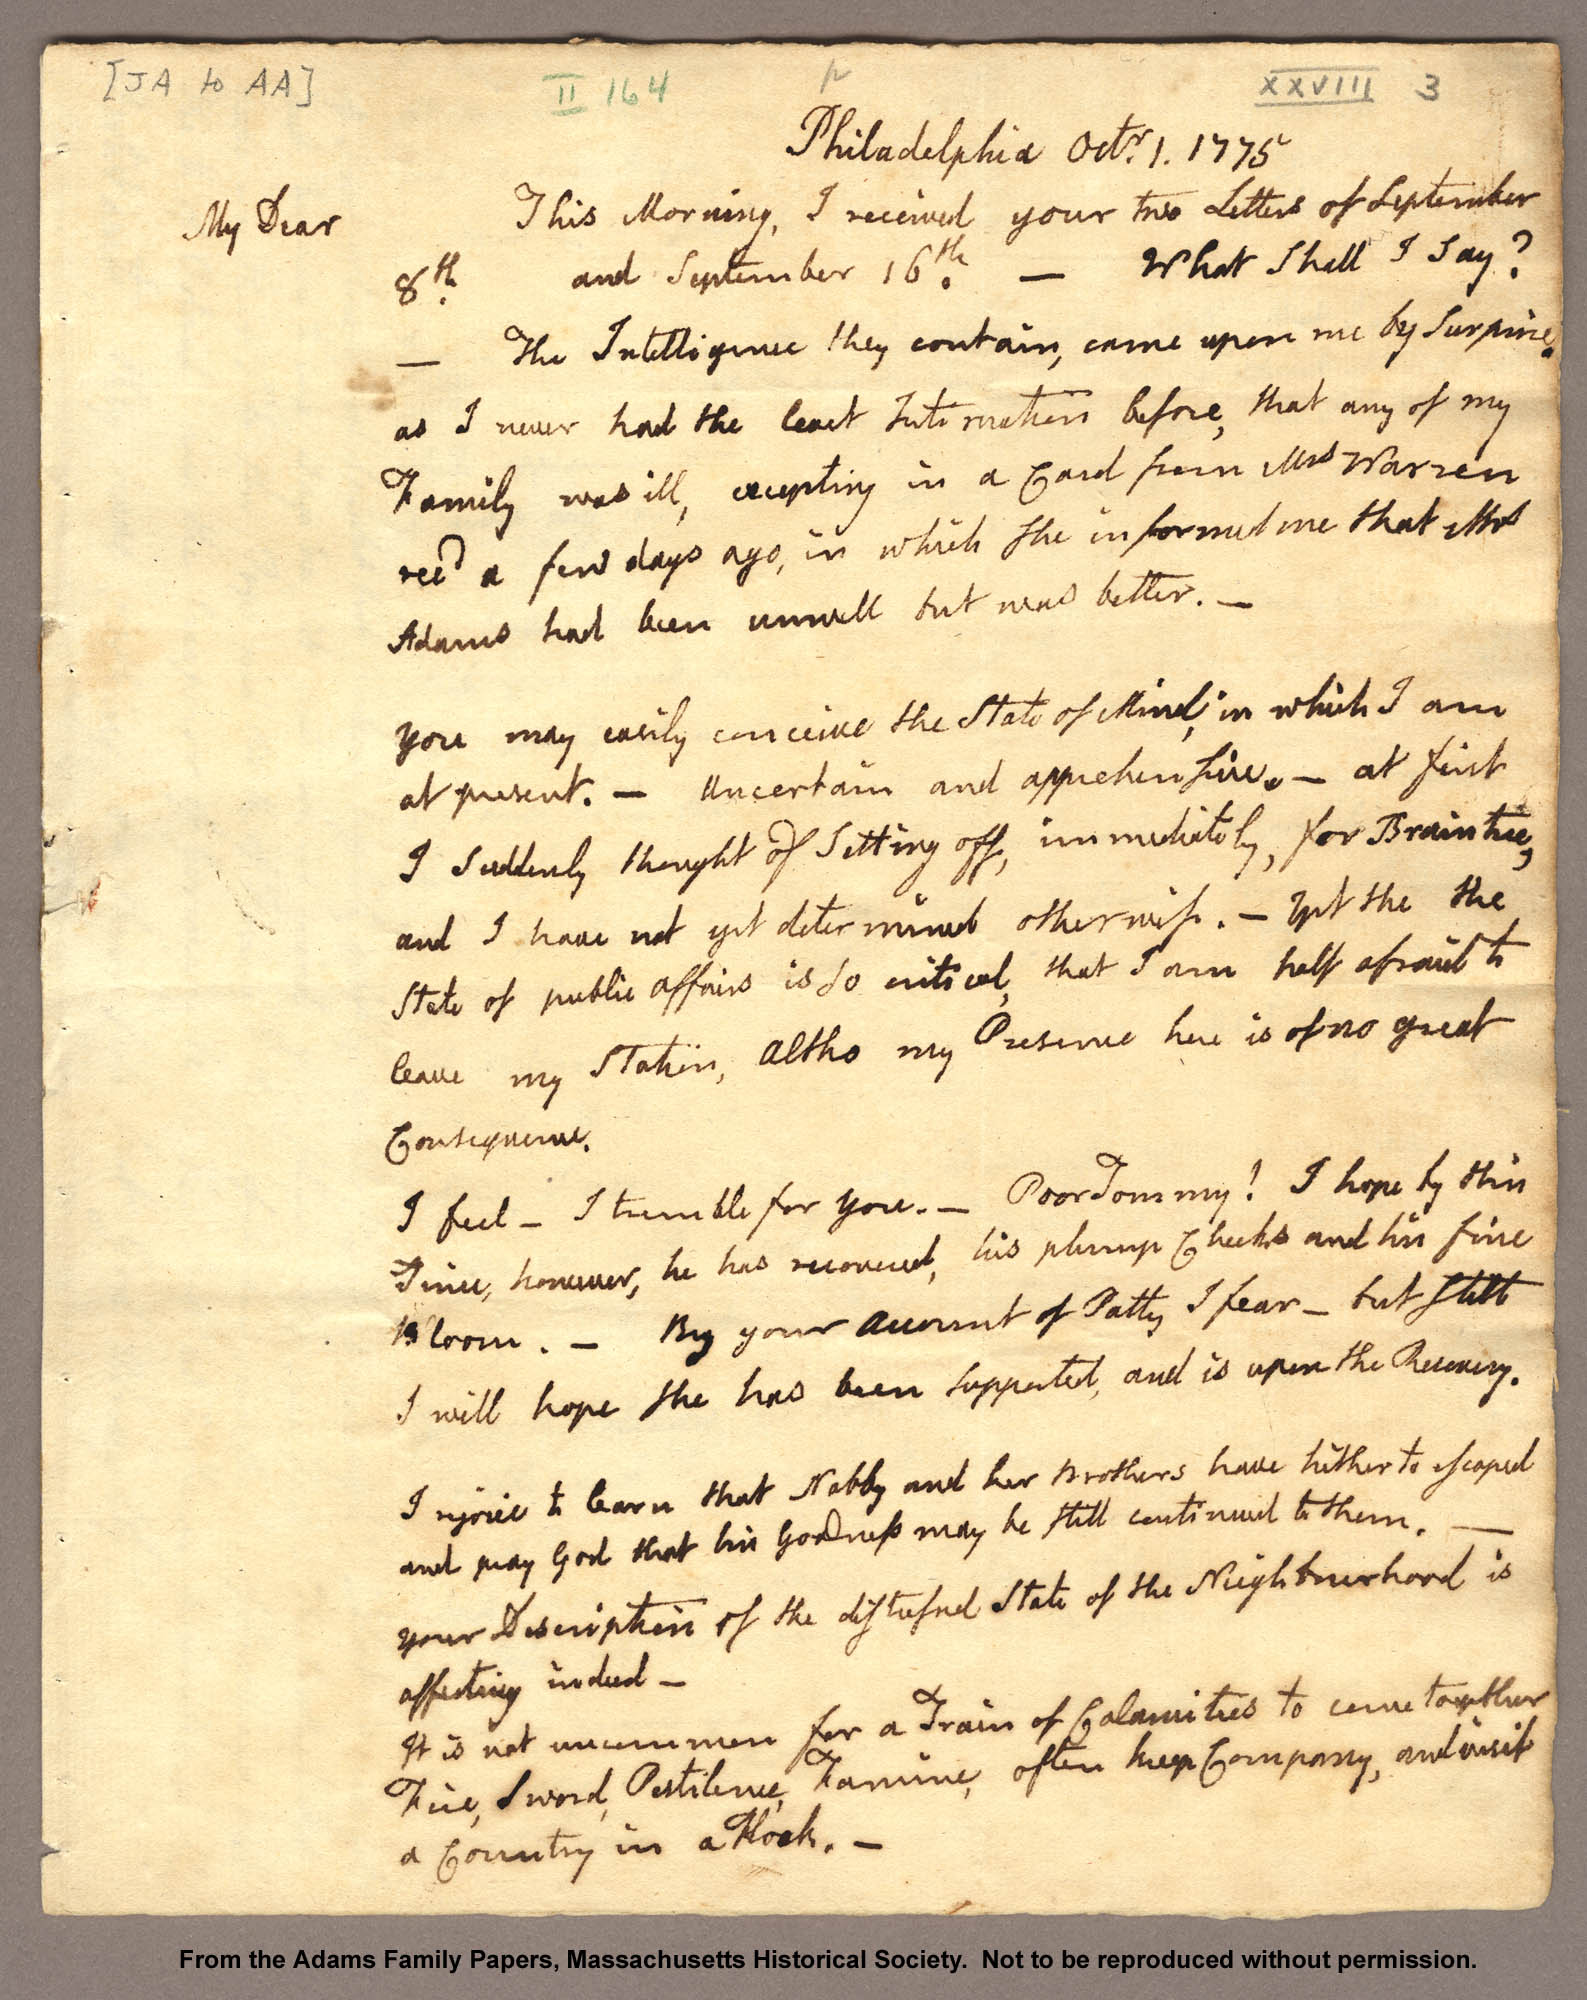 [JA to AA]
II 164
XXVIII 3
Philadelphia Octr. 1. 1775
My Dear
This Morning, I received your two Letters of September
8th. and September 16th. — What Shall I Say?
— The Intelligence they contain, came upon me by Surprize,
as I never had the least Intimation before, that any of my
Family was ill, excepting in a Card from Mrs Warren
recd a few days ago, in which She informed me that Mrs
Adams had been unwell but was better. —
You may easily conceive the State of Mind, in which I am
at present. — Uncertain and apprehensive. — at first
I Suddenly thought of Setting off, immediately, for Braintree,
and I have not yet determined otherwise. — Yet the the
State of public affairs is So critical, that I am half afraid to
leave my Station, Altho my Presence here is of no great
Consequence.
I feel — I tremble for You. — Poor Tommy! I hope by this
Time, however, he has recovered, his plump Cheeks and his fine
Bloom. — By your Account of Patty I fear — but Still
I will hope She has been Supported, and is upon the Recovery.
I rejoice to learn that Nabby and her Brothers have hitherto escaped
and pray God that his Goodness may be Still continued to them. —
your Description of the distressed State of the Neighbourhood is
affecting indeed —
It is not uncommon for a Train of Calamities to come together
Fire, Sword, Pestilence, Famine, often keep Company, and visit
a Country in a Flock. —
From the Adams Family Papers, Massachusetts Historical Society. Not to be reproduced without permission.